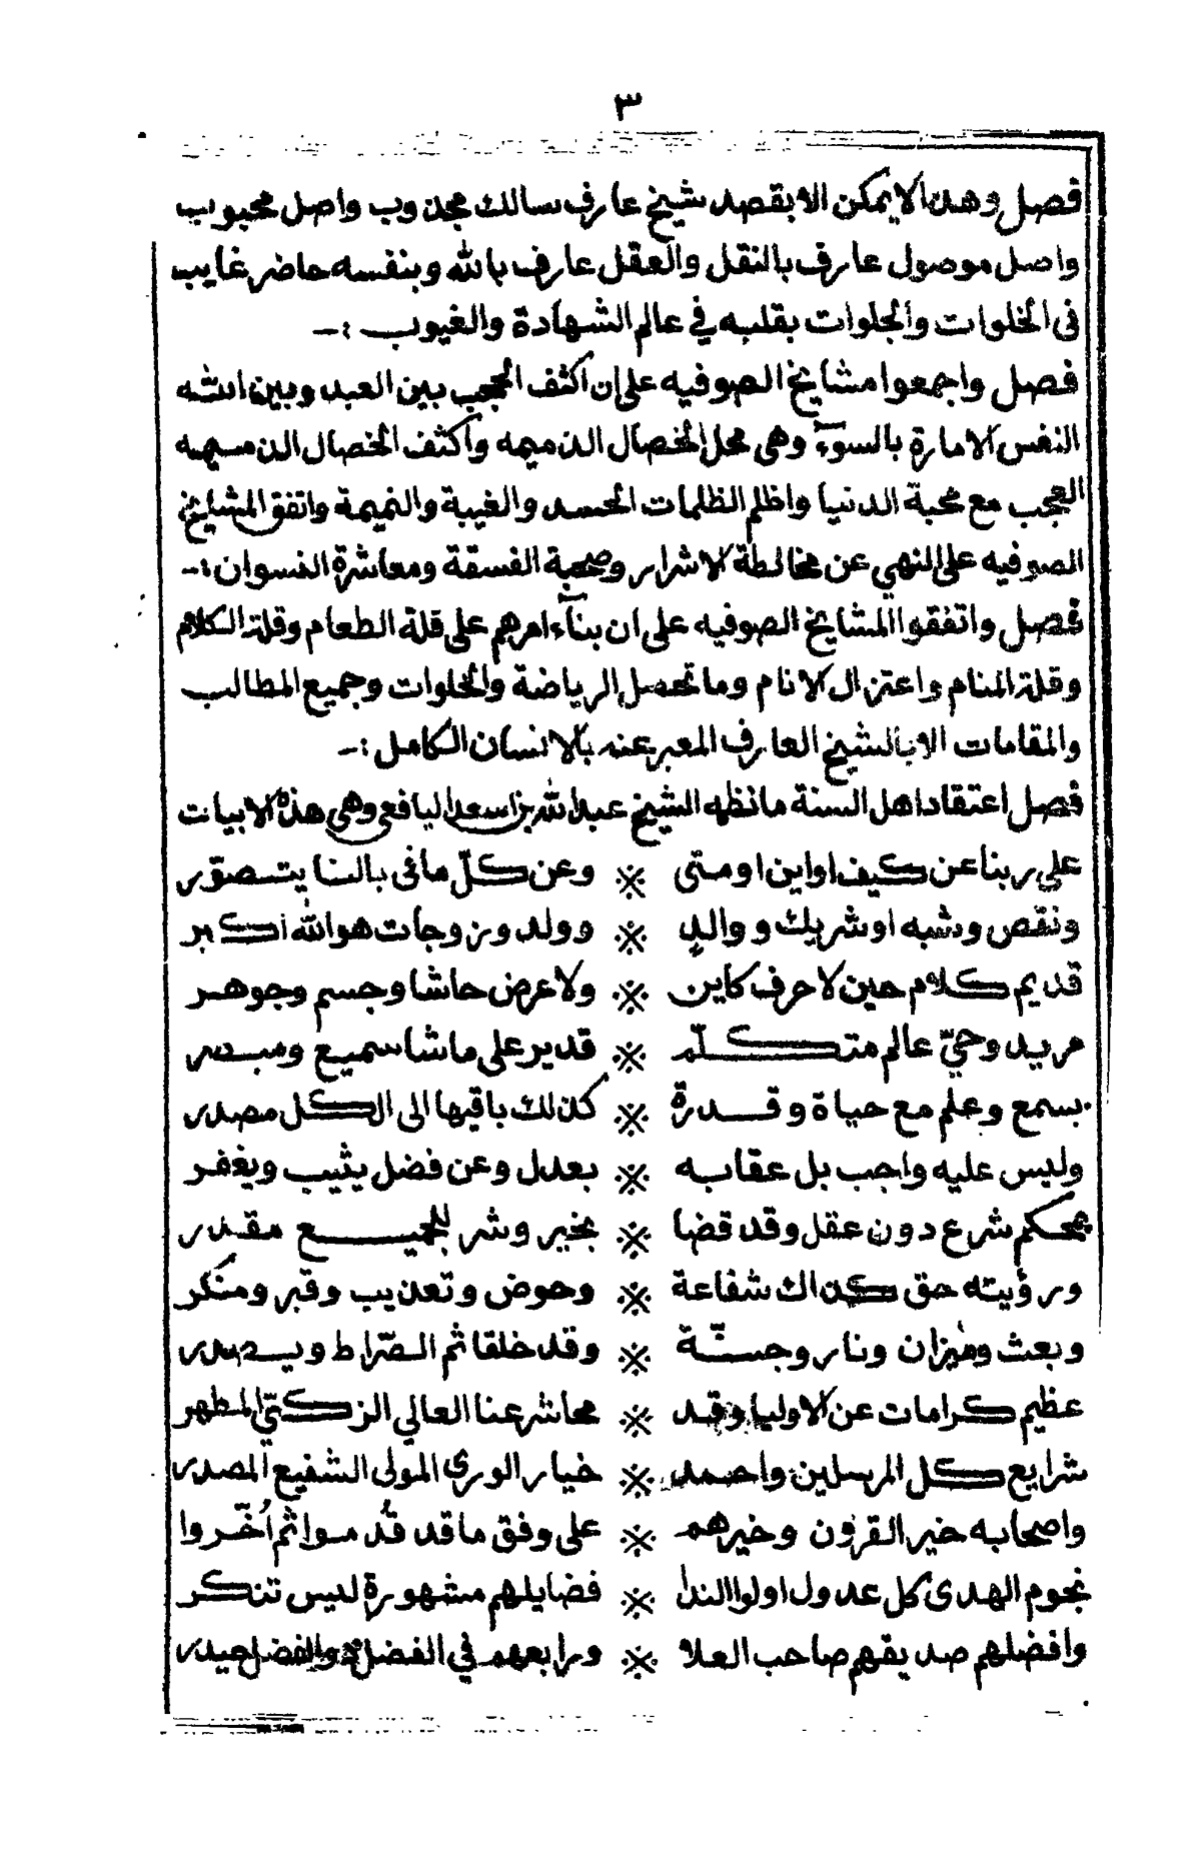 ٣
فصل وهذا لا يمكن الا بقصد شيخ عارف سالك مجذوب واصل محبوب
واصل موصول عارف بالنقل والعقل عارف بالله وبنفسه حاضر غايب
فى الخلوات والجلوات بقلبه في عالم الشهادة والغيوب :ـ
فصل واجمعوا مشايخ الصوفيه على ان اكثف الحجب بين العبد وبين الله
النفس الامارة بالسوٓء وهى محل الخصال الذميمه واكثف الخصال الذميمه
العجب مع محبة الدنيا واظلم الظلمات الحسد والغيبة والنميمة واتفق المشايخ
الصوفيه على النهي عن مخالطة الاشرار وصحبة الفسقة ومعاشرة النسوان :ـ
فصل واتفقوا المشايخ الصوفيه على ان بنآء امرهم على قلة الطعام وقلة الكلام
وقلة المنام واعتزال الانام وما تحصل الرياضة والخلوات وجميع المطالب
والمقامات الا بالشيخ العارف المعبر عنه بالانسان الكامل :ـ
فصل اعتقاد اهل السنة ما نظمه الشيخ عبد الله بن اسعد اليافعي وهى هذه الابيات
على ربنا عن كيف او اين او متى ※ وعن كلّ ما فى بالنا يتصوّر
ونقص وشبه او شريك ووالدٍ ※ وولد وزوجات هو الله اكبر
قديم كلام حين لا حرف كاين ※ ولا عرض حاشا وجسم وجوهر
مريد وحيّ عالم متكلّم ※ قدير على ما شا سميع ومبصر
بسمع وعلم مع حياة وقدرة ※ كذلك باقيها الى الكل مصدر
وليس عليه واجب بل عقابه ※ بعدل وعن فضل يثيب ويغفر
بمحكم شرع دون عقل وقد قضا ※ بخير وشر للجميع مقدر
ورؤيته حق كذاك شفاعة ※ وحوض وتعذيب وقبر ومنكر
وبعث وميزان ونار وجنّة ※ وقد خلقا ثم الصّراط ويصدر
عظيم كرامات عن الاوليا وقد ※ محا شرعنا العالي الزكيّ المطهر
شرايع كل المرسلين واحمد ※ خيار الورى المولى الشفيع المصدر
واصحابه خير القرون وخيرهم ※ على وفق ما قد قُدموا ثم اُخّروا
نجوم الهدى كل عدول اولوا الندا ※ فضايلهم مشهورة ليس تنكر
وافضلهم صديقهم صاحب العلا ※ ورابعهم في الفضل ذو الفضل حيدر